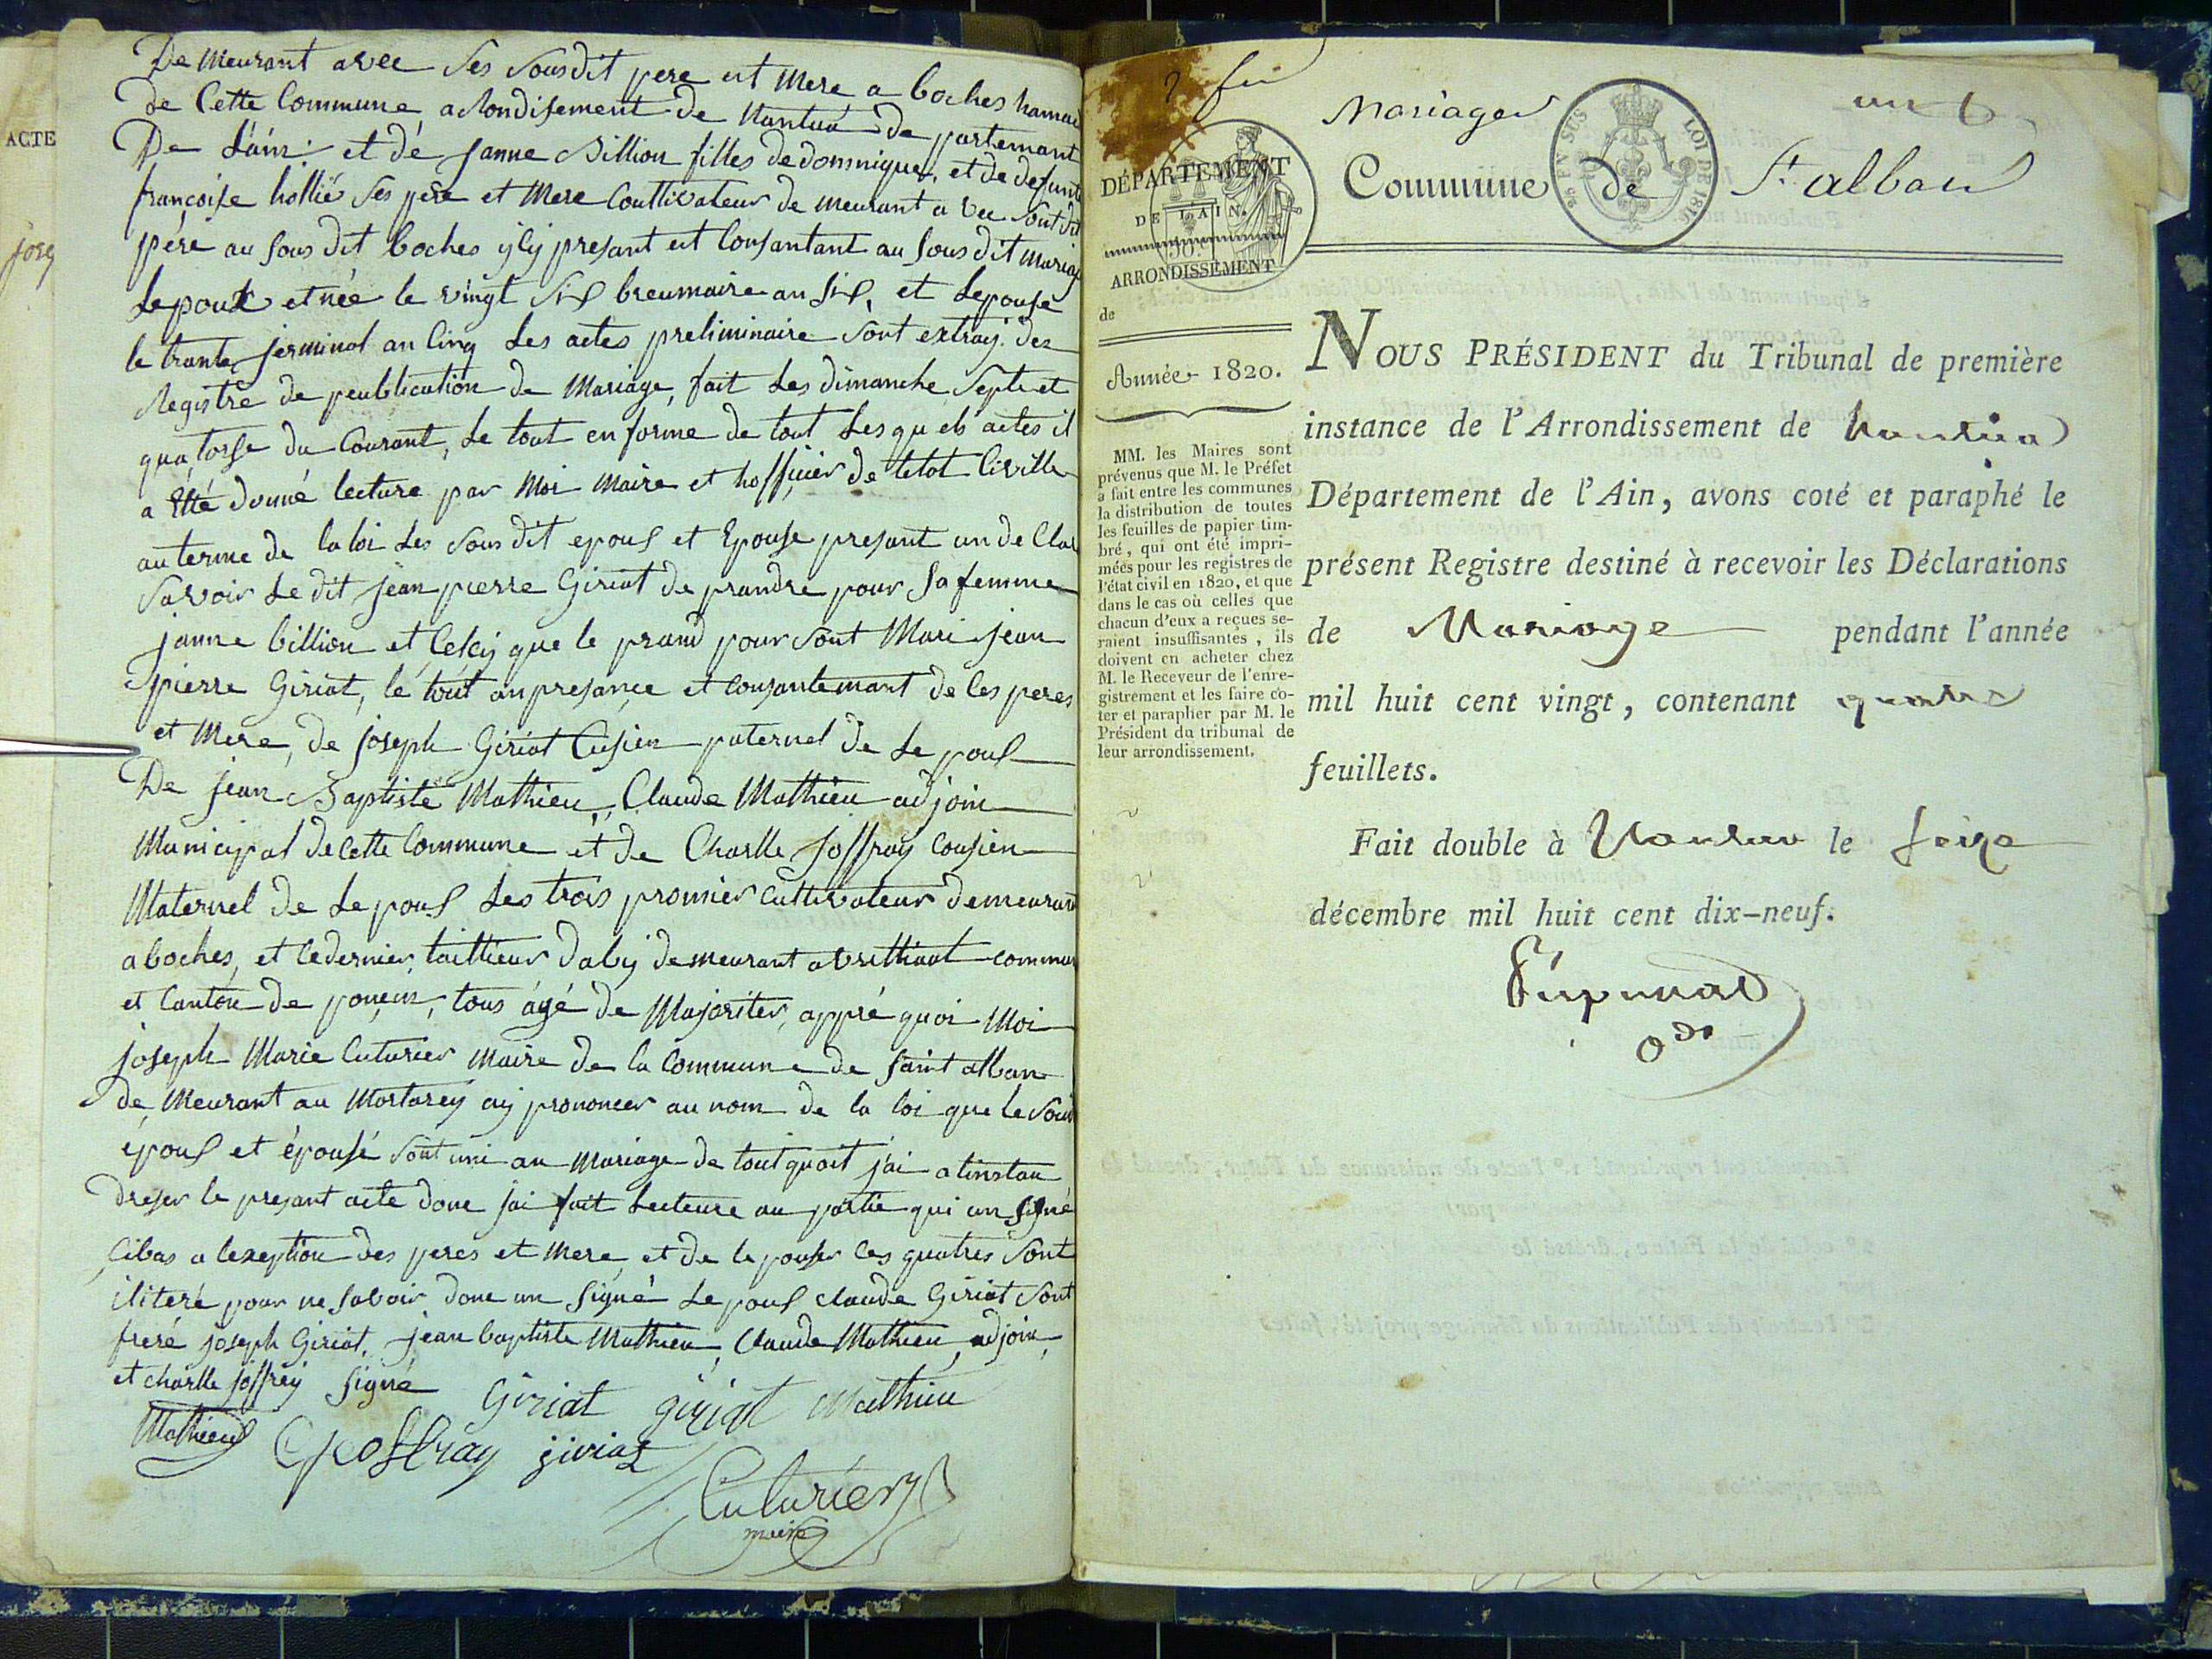 De meurant avec ses sousdit pere et mere a boches hamau
de Cette Commune, arondisement de Nantua departemant
De L'ain: et dé janne Billion filles de domnique, et de defunte
françoise hollié ses pére et mere Couttivateur de meurant a vec sout dit
pére au sous dit boches ycy presant et Consantant au sous dit mariage
Lepoux et née le vingt six breumaire an six, et Lepouse
le trante jerminal an Cinq Les actes preliminaire sont extray des
Registre de peublication de Mariage, fait Les dimanche Septe et
quatorse du Courant, Le tout en forme de tout Lesquels actes il
a Été donné lecture par moi maire et hofficier de letot Civille
au terme de la loi Les sous dit epous et Epouse presant un de Clar
savoir Le dit jean pierre Giriat de prandre pour sa femme
janne billion et Celcy que le prand pour sont Mari jean
pierre Giriat, lé tout an presançe et Consantemant de les peres
et Mere, de joseph Giriat Cusien paternel de Le pous
De jean Baptiste Mathieu, Claude Mathieu adjoin
Municipal de Cette Commune et de Charlle joffray Cousien
Maternel de Le pous Les trois promier Cultivateur demeurant
a boches, et le dernier taillieur daby demeurant a brilliaut commun
et Canton de ponçin, tous ágé de Majoriter, appré quoi Moi
joseph Marie Cuturier Maire de la Commune de Saint alban
de Meurant au Mortarey ay prononcer au nom de la loi que le sous
épous et épousé sont uni an mariage de tout quoit j'ai a linstan
dreser le presant acte donc jai fait Lecteure au partie qui an signé
Cibas a lexeption des peres et mere, et de le pouser les quatres sont
iliteré pour ne savoir donc un signé Le pous claude Giriat sont
freré joseph Giriat, jean baptiste Mathieu, Claude Mathieu, adjoin,
et charlle joffrey signé Giriat giriat Mathieu
Mathieu C joffray jiriat
Cuturier
maire
ACTE
jose
Mariages
un
Commune de St alban
EN SUS
LOI DE 1816
DÉPARTEMENT
DE L'AIN.
ARRONDISSEMENT
de
Année 1820.
MM. les Maires sont
prévenus que M. le Préfet
a fait entre les communes
la distribution de toutes
les feuilles de papier tim-
bré, qui ont été impri-
mées pour les registres de
l'état civil en 1820, et que
dans le cas où celles que
chacun d'eux a reçues se-
raient insuffisantes, ils
doivent en acheter chez
M. le Receveur de l'enre-
gistrement et les faire co-
ter et parapher par M. le
Président du tribunal de
leur arrondissement.
NOUS PRÉSIDENT du Tribunal de première
instance de l'Arrondissement de Nantua
Département de l'Ain, avons coté et paraphé le
présent Registre destiné à recevoir les Déclarations
de Mariage pendant l'année
mil huit cent vingt, contenant quatre
feuillets.
Fait double à Nantua le seize
décembre mil huit cent dix-neuf.